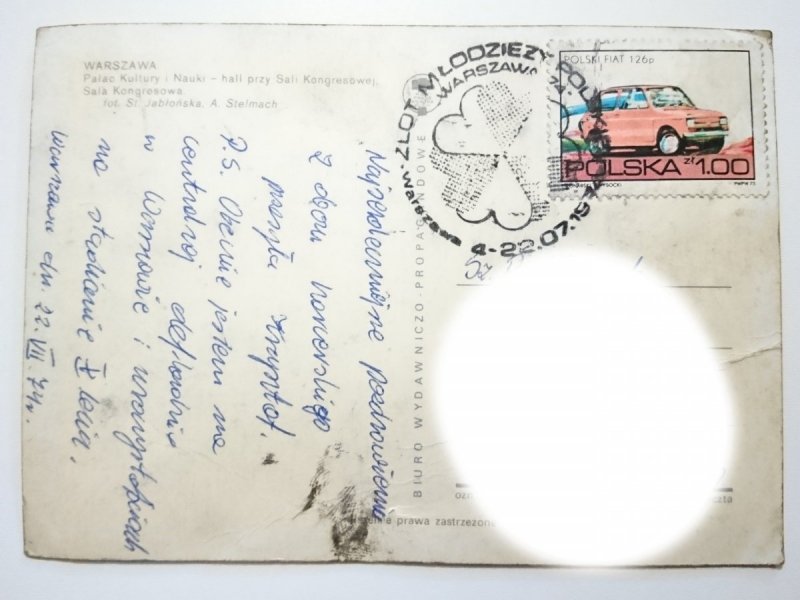 WARSZAWA
Pałac Kultury i Nauki – hall przy Sali Kongresowej,
Sala Kongresowa.
fot. St. Jabłońska, A. Stelmach
Najserdeczniejsze pozdrowienia
z obozu
przesyła Krzysztof.
P.S. Obecnie jestem na
centralnej defiladzie
w Warszawie i uroczystościach
na stadionie X lecia.
Warszawa dn. 22.VII.74r.
BIURO WYDAWNICZO-PROPAGANDOWE
ZLOT MŁODZIEŻY POLSKIEJ
WARSZAWA
Warszawa
4-22.07.1974
POLSKI FIAT 126p
POLSKA zł 1.00
PWPW 73
Sz.
prawa zastrzeżone